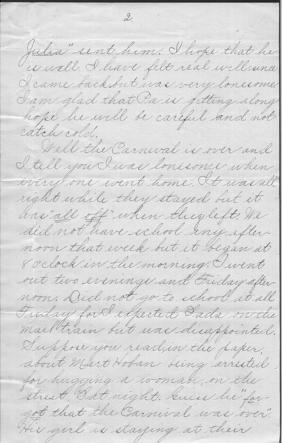 2
Julia" sent him. I hope that he
is well. I have felt real well since
I came back but was very lonesome
I am glad that Pa is getting along
hope he will be careful and not
catch cold.
Well the Carnival is over and
I tell you I was lonesome when
every one went home. It was all
right while they stayed but it
was "all off" when they left. We
did not have school any after-
noon that week but it began at
8 o'clock in the morning. I went
out two evenings and Friday after-
noon. Did not go to school at all
Friday for I expected Dada on the
mail train but was disappointed.
Suppose you read, in the paper,
about Mart Hoban being arrested
for hugging a woman, on the
street, Sat night. Guess he "for-
got that the Carnival was over".
His girl is staying at their